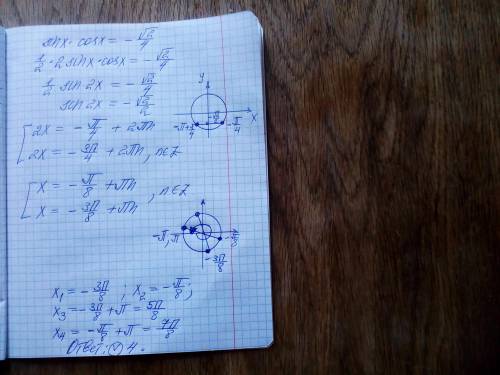 sinx · cosx = -√2/4
1/2 · 2 sinx · cosx = -√2/4
1/2 sin 2x = -√2/4
sin 2x = -√2/2
y
x
-π+π/4
-√2/2
-π/4
[ 2x = -π/4 + 2πn
2x = -3π/4 + 2πn, n∈Z
[ x = -π/8 + πn
x = -3π/8 + πn, n∈Z
-π, π
-π/8
-3π/8
x₁ = -3π/8 ; x₂ = -π/8 ;
x₃ = -3π/8 + π = 5π/8
x₄ = -π/8 + π = 7π/8
Ответ: 4.